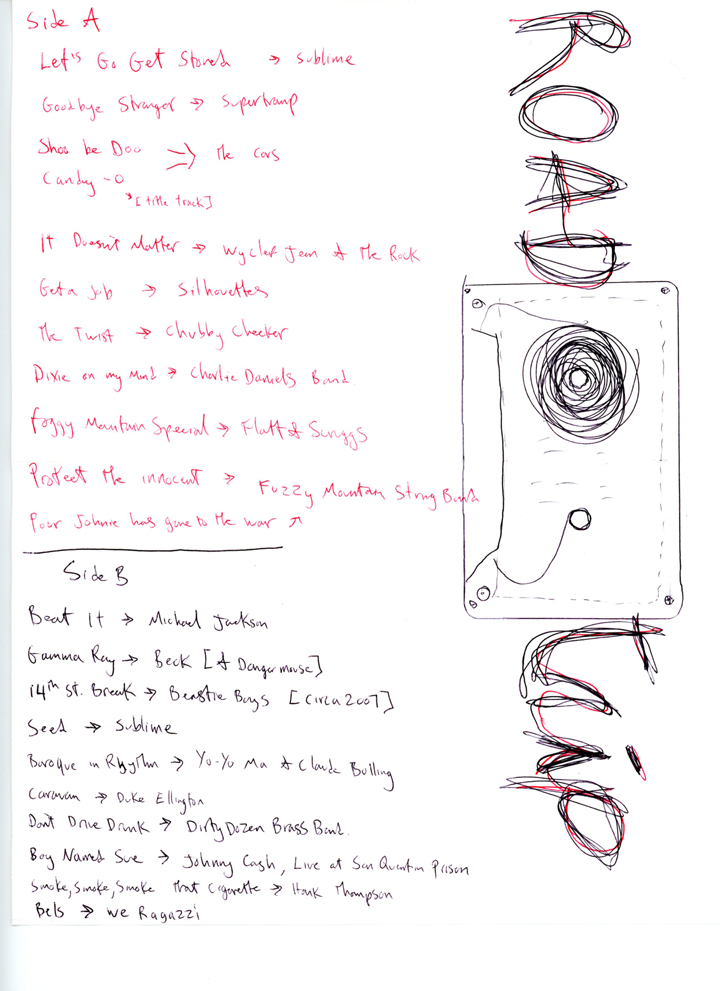 Side A
Let's Go Get Stoned → Sublime
Goodbye Stranger → Supertramp
Shoo be Doo → The Cars
Candy-O
*[title track]
It Doesn't Matter → Wyclef Jean & the Rock
Get a Job → Silhouettes
The Twist → Chubby Checker
Dixie on my Mind → Charlie Daniels Band
Foggy Mountain Special → Flatt & Scruggs
Protect the innocent → Fuzzy Mountain String Band
Poor Johnie has gone to the war ↗
Side B
Beat It → Michael Jackson
Gamma Ray → Beck [& Dangermouse]
14th St. Break → Beastie Boys [circa 2007]
Seed → Sublime
Baroque in Rhythm → Yo-Yo Ma & Claude Bolling
Caravan → Duke Ellington
Don't Drive Drunk → Dirty Dozen Brass Band.
Boy Named Sue → Johnny Cash, Live at San Quentin Prison
Smoke, Smoke, Smoke that Cigarette → Hank Thompson
Bels → We Ragazzi
ROAD
trip